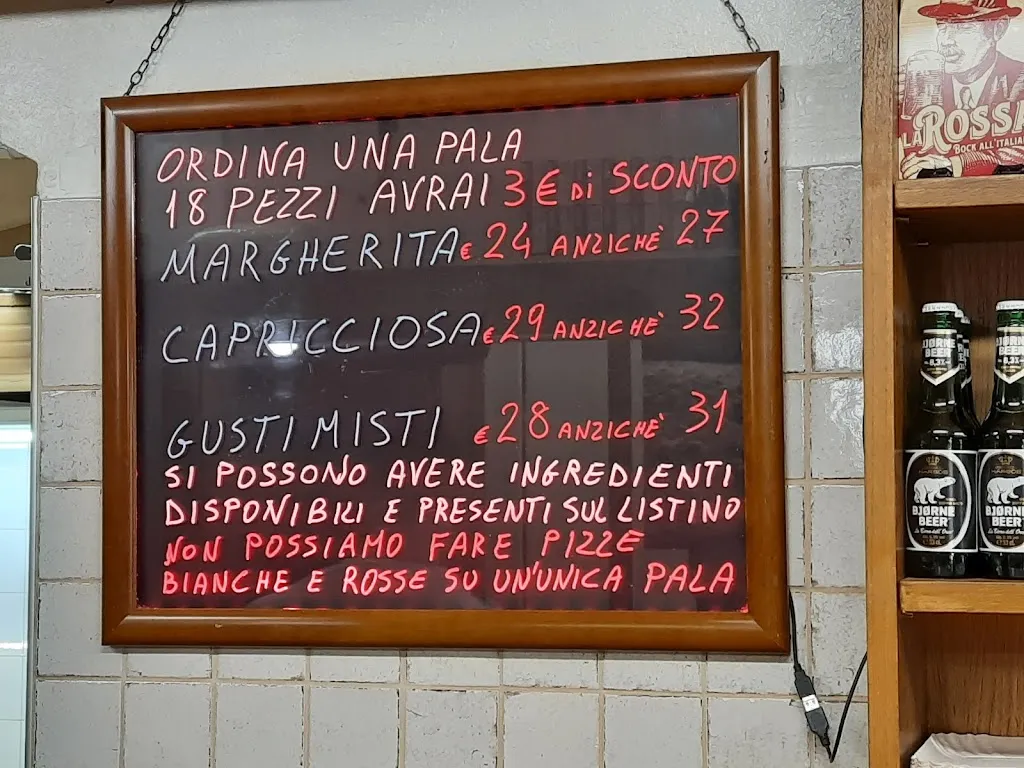 ORDINA UNA PALA
18 PEZZI AVRAI 3 € Di SCONTO
MARGHERITA € 24 ANZICHÈ 27
CAPRICCIOSA € 29 ANZICHÈ 32
GUSTI MISTI € 28 ANZICHÈ 31
SI POSSONO AVERE INGREDIENTI
DISPONIBILI E PRESENTI SUL LISTINO
NON POSSIAMO FARE PIZZE
BIANCHE E ROSSE SU UN'UNICA PALA
LA ROSSA
BOCK ALL'ITALIANA
BJØRNE
BEER
8,3%
BJØRNE
BEER
BJØRNE
BEER
BJØRNE
BEER